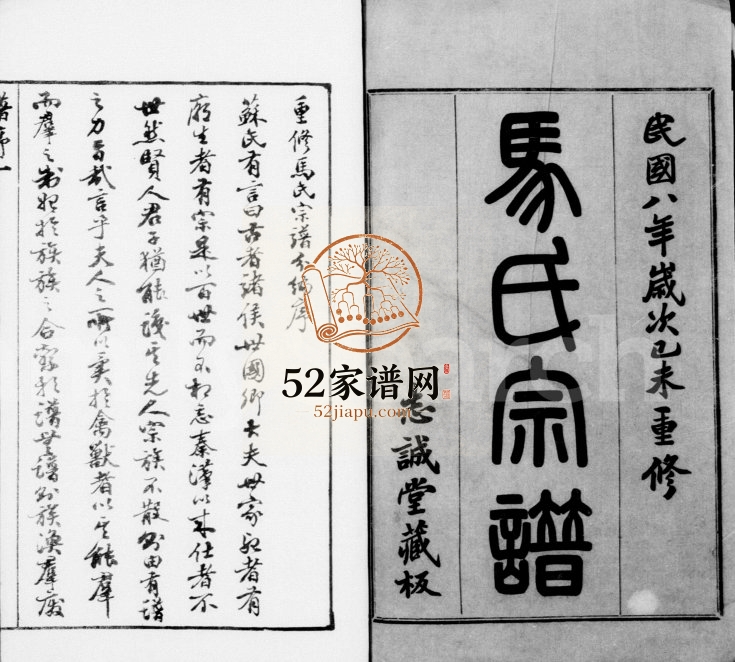 民國八年歲次己未重修
馬氏宗譜
志誠堂藏板
重修馬氏宗譜序
蘇氏有言曰古者諸侯世國卿大夫世家死者有
廟生者有宗是以百世而不相忘秦漢以來仕者不
世然賢人君子猶能識其先人宗族不散則由有譜
之力旨哉言乎夫人之所以異於禽獸者以其能群
而羣之制起於族族之合於譜無譜則族渙羣廢
譜序一
52家谱网
52jiapu.com